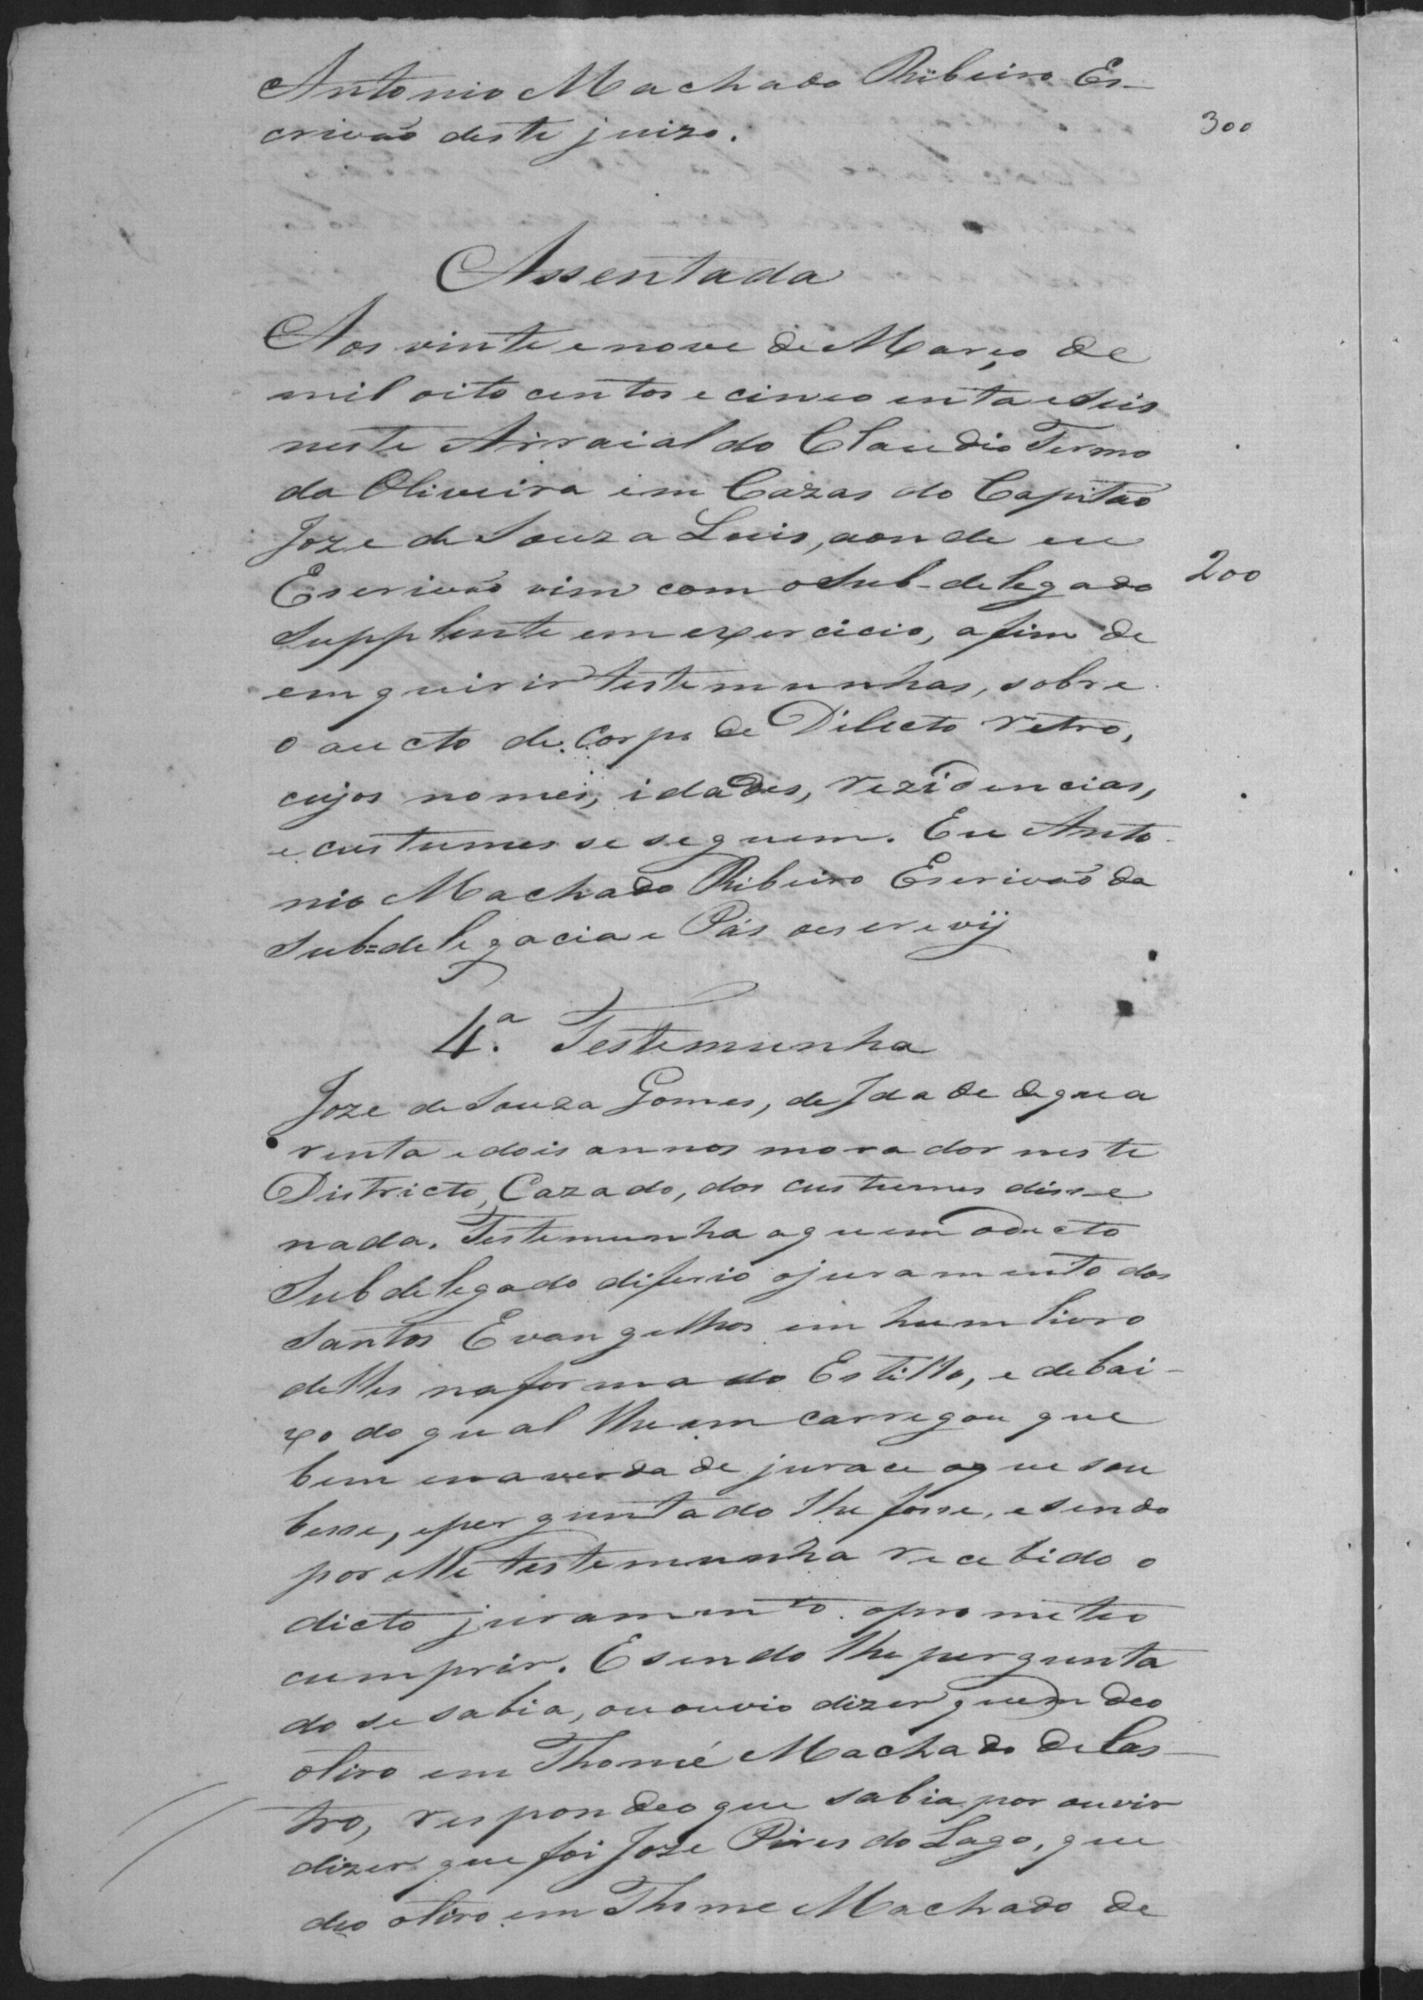 Antonio Machado Ribeiro Es-
crivaõ deste juizo.
300
Assentada
Aos vinte e nove de Março de
mil oito centos e cincoenta e seis
neste Arraial do Claudio Termo
da Oliveira em Cazas do Capitaõ
Joze de Souza Luis, aonde eu
Escrivaõ vim com o Sub-delegado
200
Supplente em exercicio, afim de
emquirir testemunhas, sobre
o aucto de Corpo de Dilicto retro,
cujos nomes, idades, rezidencias,
e custumes se seguem. Eu Anto
nio Machado Ribeiro Escrivaõ da
Sub=delegacia e Pás o escrevij
4.ª Testemunha
Joze de Souza Gomes, de Idade de qua
renta e dois annos morador neste
Districto, Cazado, dos custumes disse
nada. Testemunha a quem o dicto
Subdelegado diferio o juramento dos
Santos Evangelhos em hum livro
delles na forma do Estillo, e debai-
xo do qual lhe emcarregou que
bem e na verdade jurace o que sou
besse, e perguntado lhe fosse, e sendo
por elle testemunha recebido o
dicto juramento o prometeo
cumprir. E sendo lhe pergunta
do se sabia, ou ouvio dizer quem deo
o tiro em Thomé Machado de Cas-
tro, respondeo que sabia por ouvir
dizer que foi Joze Pires do Lago, que
deo o tiro em Thome Machado de